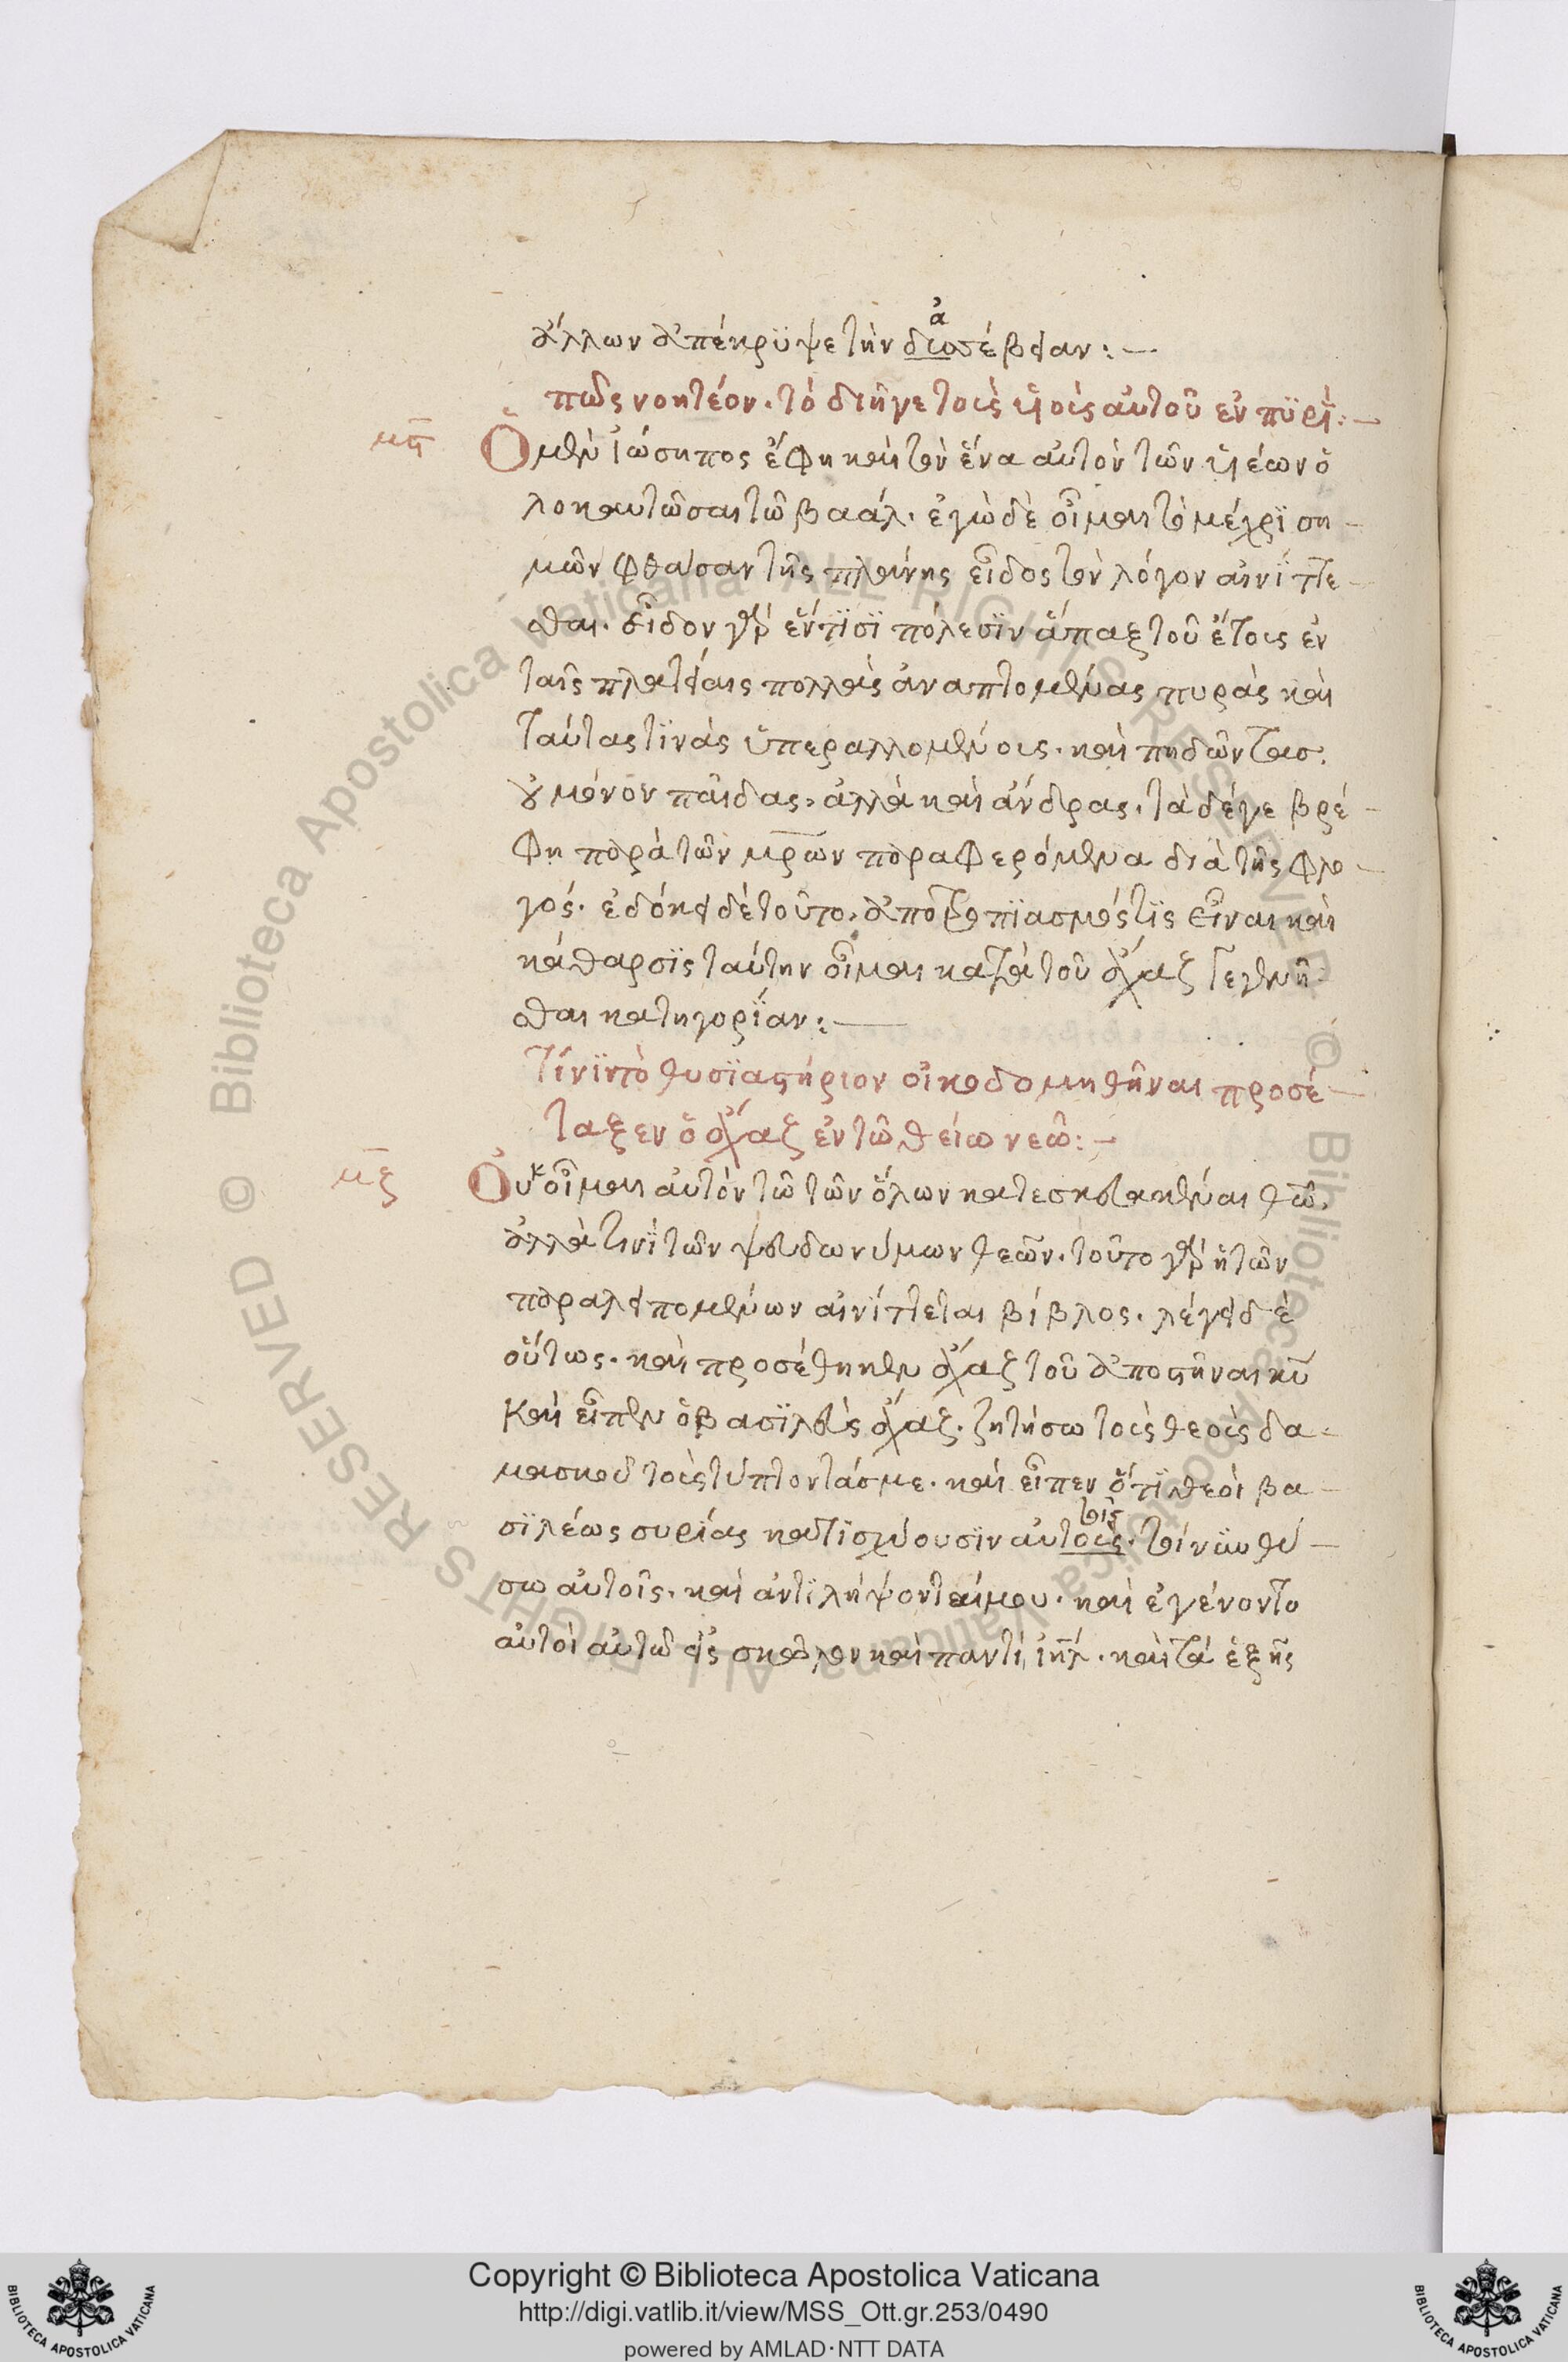 ἄλλων ἀπέκρυψε τὴν διοσέβειαν:—
ἀ
πῶς νοητέον. τὸ διῆγε τοὺς υἱοὺς αὐτοῦ ἐν πυρί:—
μϛ
Ὁ μὲν ἰώσηπος ἔφη καὶ τὸν ἕνα αὐτὸν τῶν υἱέων ὁ
λοκαυτῶσαι τῶ βαάλ. ἐγὼ δὲ οἶμαι τὸ μέχρϊσ η-
μῶν φθάσαν τῆς πλάνης εἶδος τὸν λόγον αἰνίττε-
σθαι. εἶδον γὰρ ἔν τϊσϊ πόλεσϊν ἅπαξ τοῦ ἔτους ἐν
ταῖς πλατείαις πολλὰς ἀναπτομένας πυρὰς καὶ
ταύτας τϊνὰς ὑπεραλλομένους. καὶ πηδῶντασ.
οὐ μόνον παῖδας. ἀλλὰ καὶ ἄνδρας. τὰ δέ γε βρέ-
φη παρὰ τῶν μρων παραφερόμενα διὰ τῆς φλο-
γός. ἐδόκει δὲ τοῦτο. ἀποτροπϊασμός τϊς εἶναι καὶ
κάθαρσϊς ταύτην οἶμαι κατὰ τοῦ ἄχαζ γεγενῆ-
σθαι κατηγορΐαν:—
Τίνϊ τὸ θυσϊαστήριον οἰκοδομηθῆναι προσέ-
ταξεν ὁ ἄχαζ ἐν τῶ θείω νεῶ:—
μζ
Οὐκ οἶμαι αὐτὸν τῶ τῶν ὅλων κατεσκευακέναι θῶ.
ἀλλὰ τινὶ τῶν ψευδωνύμων θεῶν. τοῦτο γὰρ ἡ τῶν
παραλειπομένων αἰνίττεται βίβλος. λέγει δὲ
οὕτως. καὶ προσέθηκεν ἄχαζ τοῦ ἀποστῆναι κυ
Καὶ εἶπεν ὁ βασϊλεὺς ἄχαζ. ζητήσω τοὺς θεοὺς δα-
μασκοῦ τοὺς τύπτοντάσ με. καὶ εἶπεν ὅτϊ θεοὶ βα-
σϊλέως συρίας κατϊσχύουσϊν αὐτούς. τοίνυν θύ-
τοῖς
σω αὐτοῖς. καὶ ἀντϊλήψονταί μου. καὶ ἐγένοντο
αὐτοὶ αὐτῶ εἰς σκῶλον καὶ παντὶ ἰηλ. καὶ τὰ ἑξῆς
Biblioteca Apostolica Vaticana ALL RIGHTS RESERVED ©
Copyright © Biblioteca Apostolica Vaticana
http://digi.vatlib.it/view/MSS_Ott.gr.253/0490
powered by AMLAD·NTT DATA
BIBLIOTECA APOSTOLICA VATICANA
BIBLIOTECA APOSTOLICA VATICANA